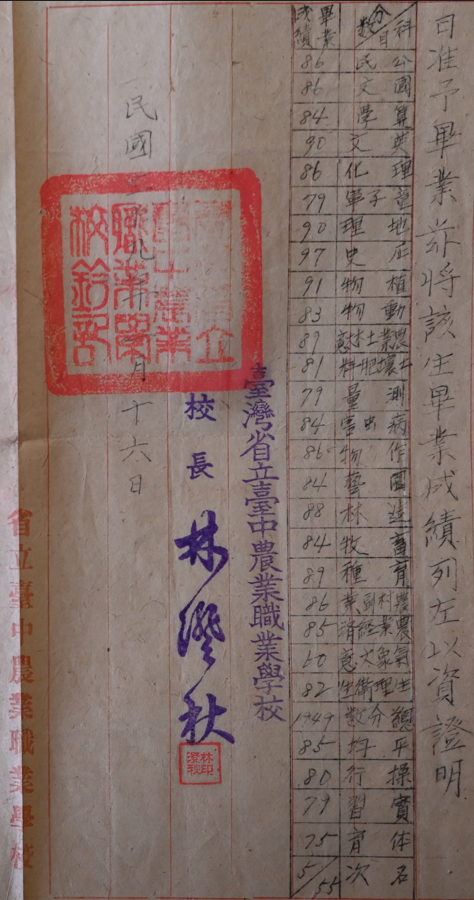 准予畢業茲將該生畢業成績列左以資證明
科目 分數 畢業成績
公民 86
國文 86
算學 84
英文 90
理化 86
童子軍 79
地理 90
歷史 97
植物 91
動物 83
農業土木大意 89
土壤肥料 81
測量 79
病虫害 84
作物 86
園藝 84
造林 88
畜牧 84
育種 89
農村副業 86
農業經濟 85
氣象大意 60
生理衛生 82
總分數 1949
平均 85
操行 80
實習 79
体育 75
名次 5/55
臺灣省立臺中農業職業學校
校長 林澄秋
林澄秋印
民國 九年 月十六日
省立臺中農業職業學校